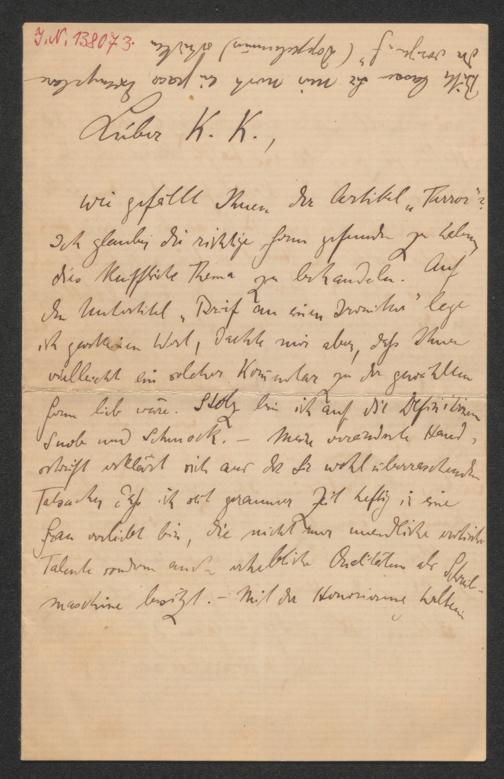 J.N. 138073.
Bitte lassen Sie mir noch ein paar Exemplare
der vorigen „F" (Doppelnummer) schicken
Lieber K. K.,
wie gefällt Ihnen der Artikel „Terror"?
Ich glaube die richtige Form gefunden zu haben,
dies Thema zu behandeln. Auf
den Untertitel „Brief an einen " lege
ich gar keinen Wert, dachte mir aber, daß Ihnen
vielleicht ein solcher Kommentar zu der gewählten
Form lieb wäre. Stolz bin ich auf die Definitionen
Snob und Schmock. – Meine veränderte Hand-
schrift erklärt sich aus der Sie wohl überraschenden
Tatsache, daß ich seit geraumer Zeit heftig in eine
Frau verliebt bin, die nicht nur unendliche erotische
Talente sondern auch erhebliche Qualitäten als Schreib-
maschine besitzt. – Mit der Honorierung